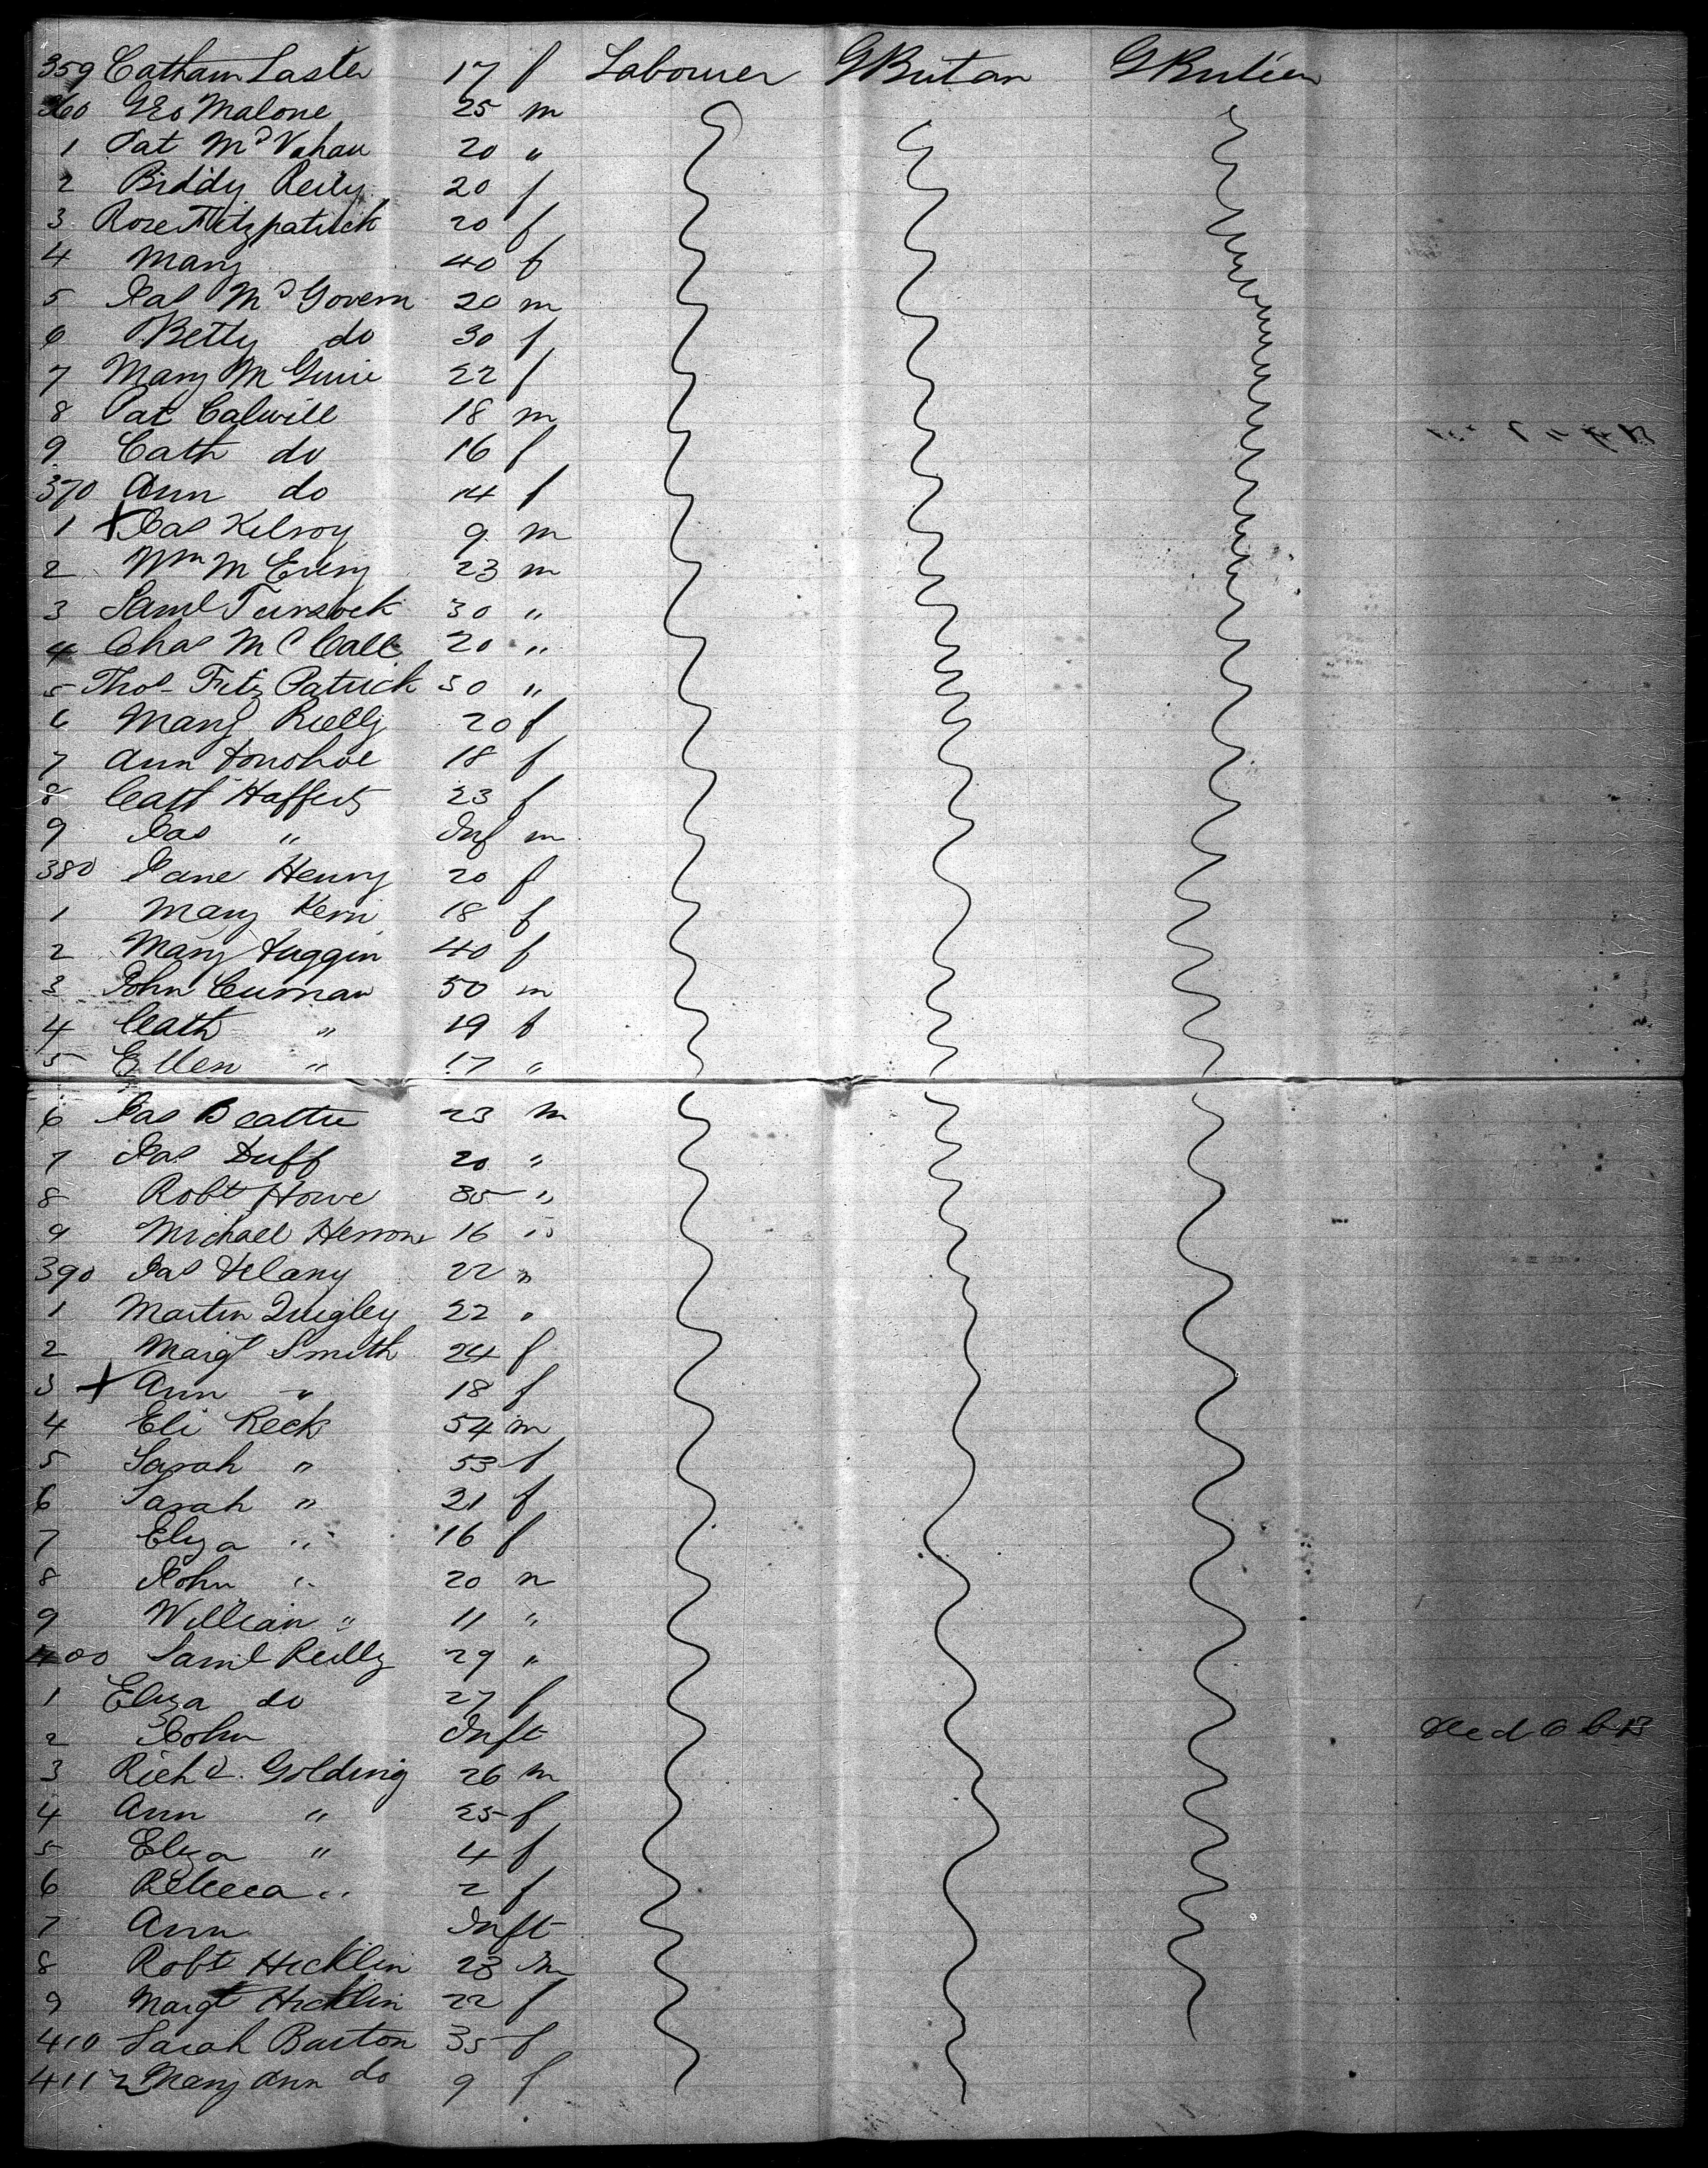 359 Catham Laster 17 f Labourer GBritan GBritian
360 Geo Malone 25 m
1 Pat McVahau 20 "
2 Biddy Reily 20 f
3 Rose Fitzpatrick 20 f
4 Mary 40 f
5 Jas McGovern 20 m
6 Betty do 30 f
7 Mary McGuire 22 f
8 Pat Calwill 18 m
9 Cath do 16 f
370 Ann do 14 f
1 X Jas Kilroy 9 m
2 Wm M 23 m
3 Saml 30 "
4 Chas McCall 20 "
5 Thos Fitz Patrick 30 "
6 Mary Rielly 20 f
7 Ann Donohoe 18 f
8 Cath Hafferty 23 f
9 Jas " Inf m
380 Jane Henry 20 f
1 Mary Kerr 18 f
2 Mary Duggin 40 f
3 John Curnan 50 m
4 Cath " 19 f
5 Ellen " 17 "
6 Jas Beattie 23 m
7 Jas Duff 20 "
8 Robt Howe 35 "
9 Michael Herron 16 "
390 Jas Delany 22 "
1 Martin Quigley 22 "
2 Margt Smith 24 f
3 X Ann " 18 f
4 Eli Keck 54 m
5 Sarah " 53 f
6 Sarah " 21 f
7 Eliza " 16 f
8 John " 20 m
9 William " 11 "
400 Saml Reilly 29 "
1 Eliza do 27 f
2 John Inft Died
3 Richd. Golding 26 m
4 Ann " 25 f
5 Eliza " 4 f
6 Rebecca " 2 f
7 Ann Inft
8 Robt Hicklin 23 m
9 Margt Hicklin 22 f
410 Sarah Barton 35 f
411 Mary Ann do 9 f